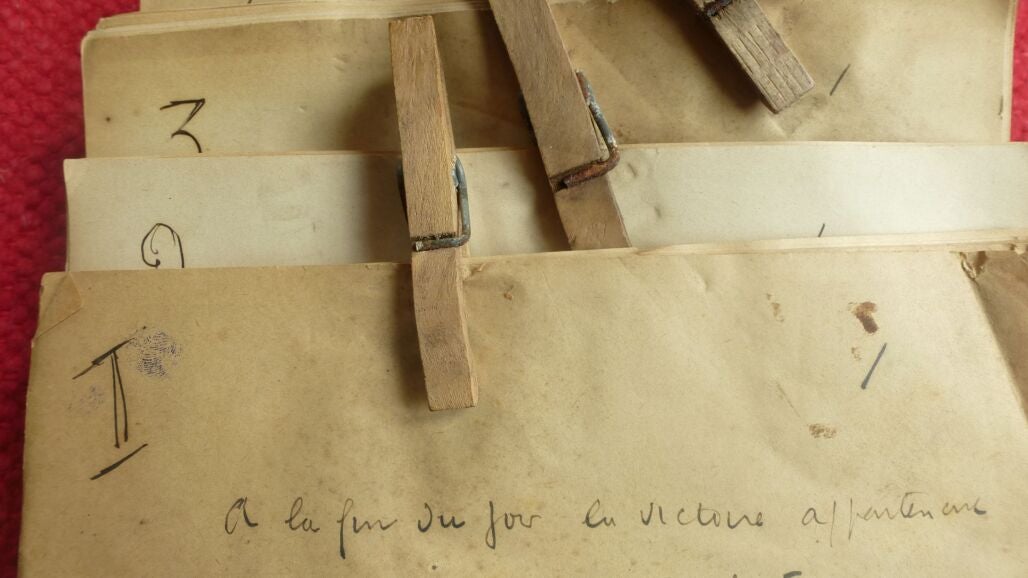 3
/
2
/
I
/
A la fin du jour la victoire appartenait